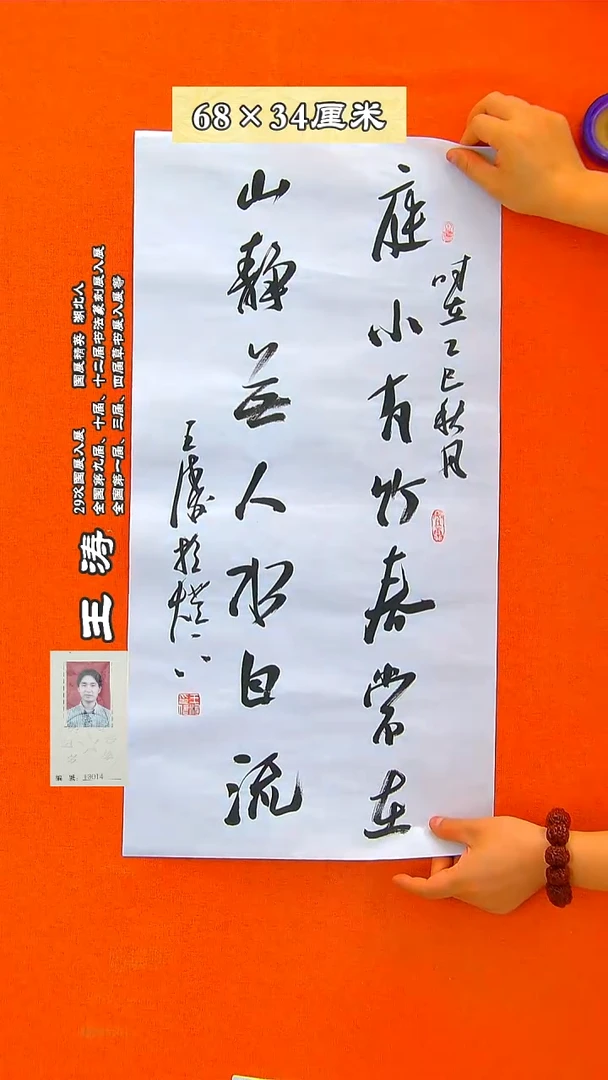 68×34厘米
时在乙巳秋风
庭小有竹春常在
山静无人水自流
王涛於
29次国展入展 国展精英 湖北人
全国第九届、十届、十二届书法篆刻展入展
全国第一届、三届、四届草书展入展等
王涛
编号: